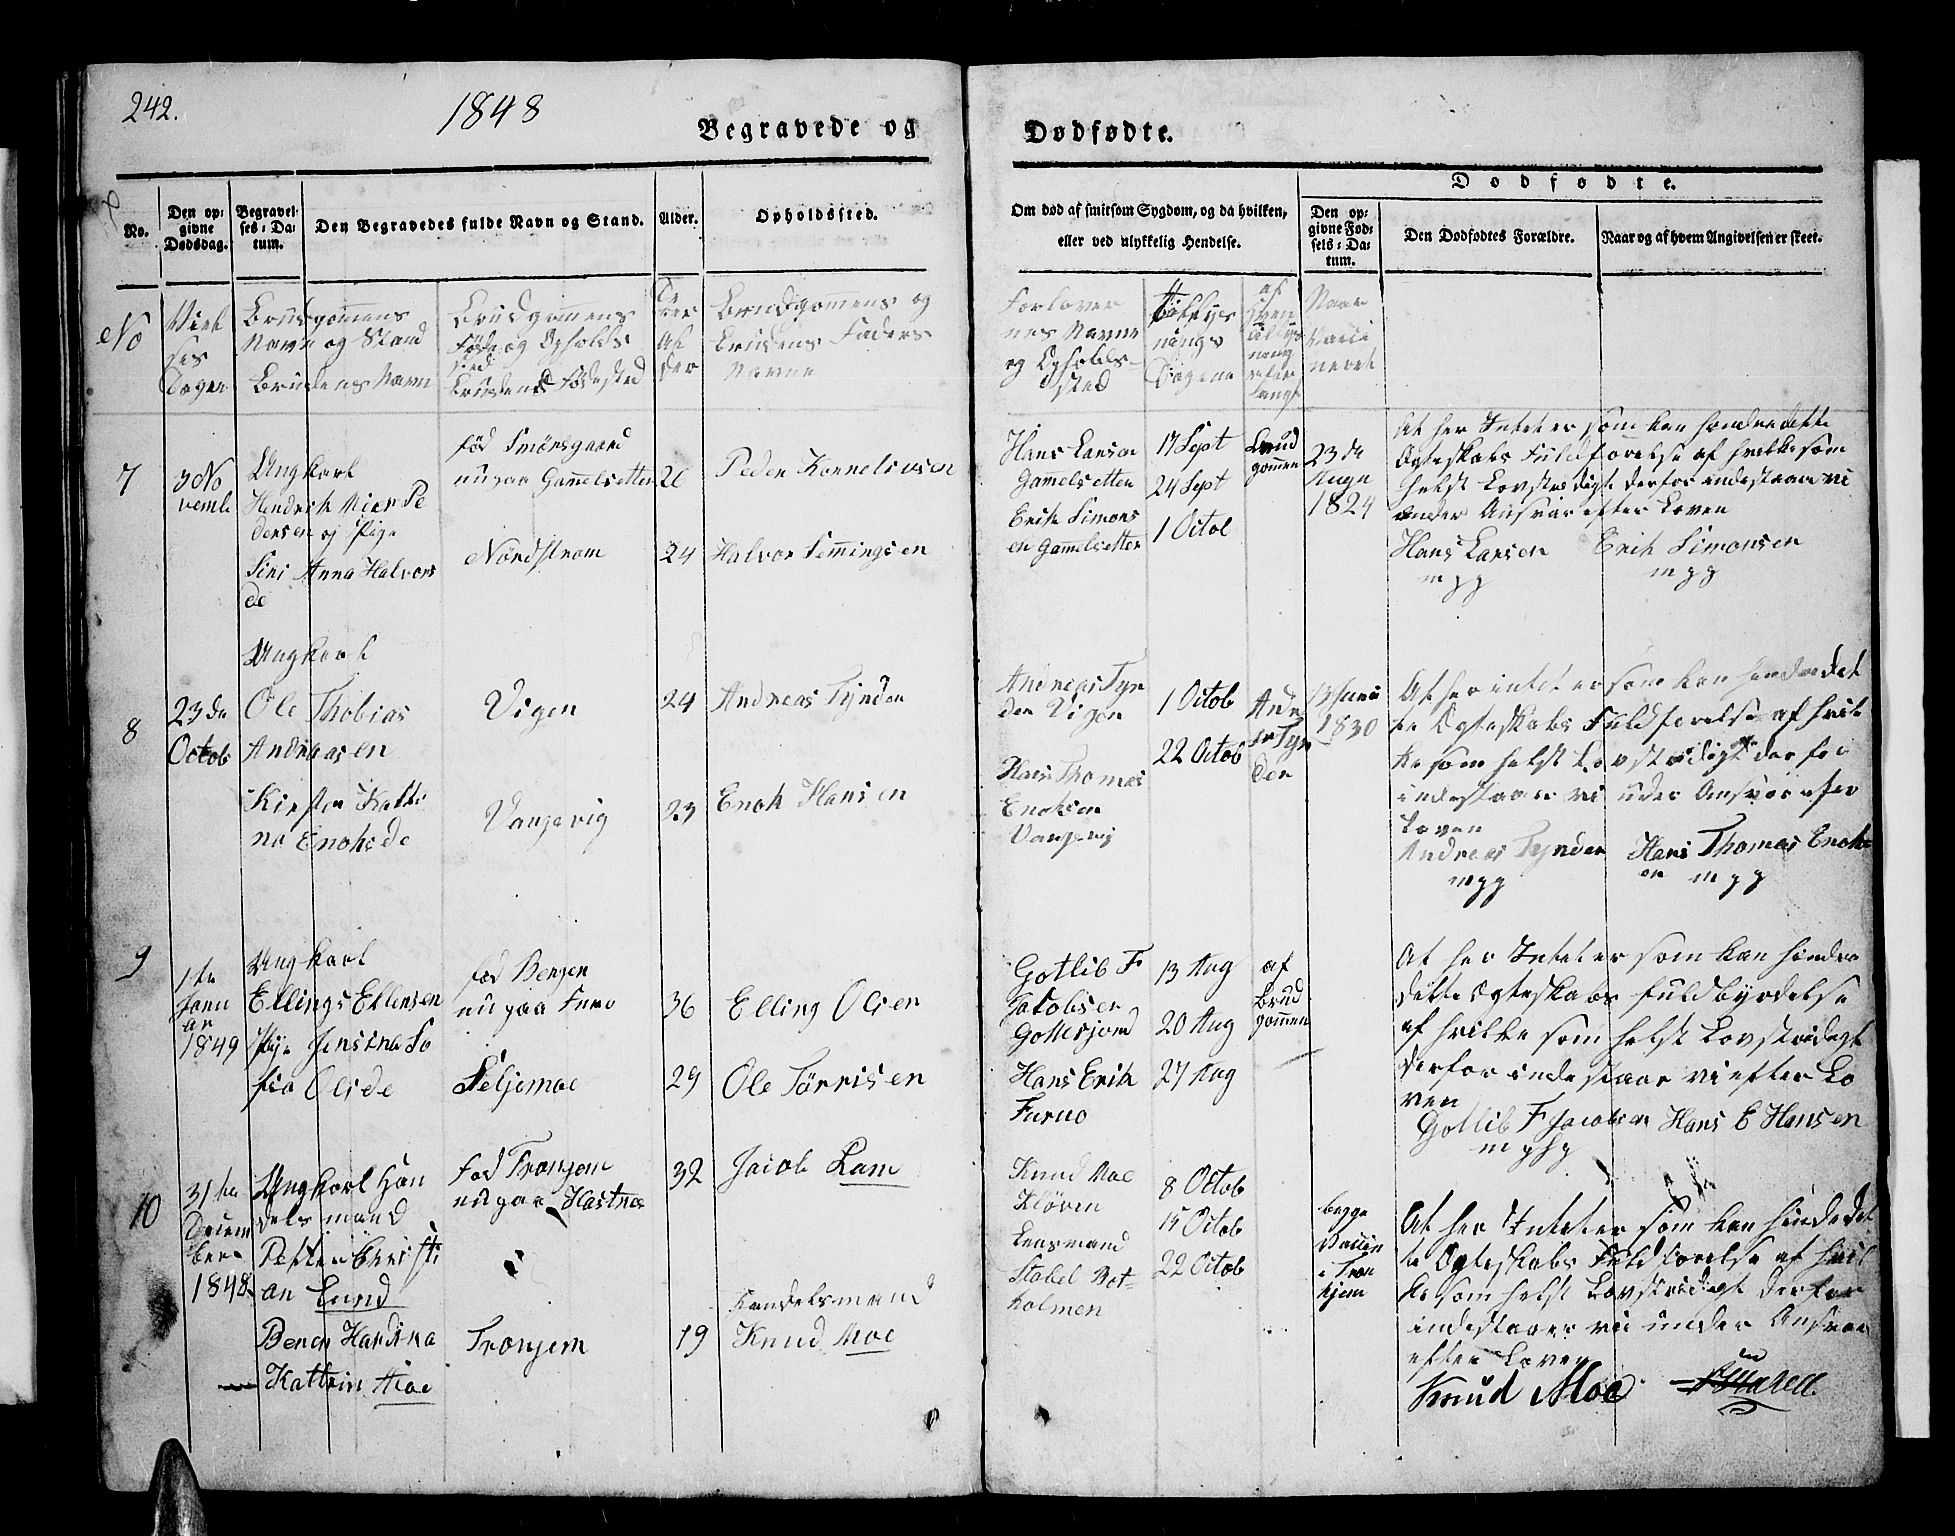 242.
1848
Begravede og
Dødfødte.
No.
Den op-
givne
Dødsdag.
Begravel-
ses-Da-
tum.
Den Begravedes fulde Navn og Stand.
Alder.
Opholdssted.
Om død af smitsom Sygdom, og da hvilken,
eller ved ulykkelig Hendelse.
Dødfødte.
Den op-
givne Fød-
sels-Da-
tum.
Den Dødfødtes Forældre.
Naar og af hvem Angivelsen er skeet.
No
Viel
ses
Dagen
Brudgommens
Navn og Stand
Brudens Navn
Brudgommens
Føde og Opholds
sted
Brudens Fødested
Al
der
Brudgomens og
Brudens Faders
Navne
Forlover
nes Navne
og Opholds-
sted
nings
Dagene
af
Naar
Vacci
neret
7
3 No
vemb
Ungkarl
Hendrik Mier Pe
dersen og Pige
Sini Anna Halvors
de
fød Smörsgaard
nu paa Gammelsetten
Nordstrom
26
24
Peder Kornelivsen
Halvor Semmingsen
Hans Larsen
Gammelsetten
Erik Simons
en Gammelsetten
17 Sept
24 Sept
1 Octob
Brud
gommen
23 de
Augu
1824
At her Intet er som kan hindre dette
Ogteskabs Fuldførelse af hvilke som
helst Lovstridigt derfor indestaar vi
under Ansvar efter Loven
Hans Larsen Erik Simonsen
m p g m p g
8
23 de
Octob
Ungkarl
Ole Thobias
Andreasen
Kirsten Katri
na Enoksde
Vigen
Vangevig
24
23
Andreas Tynden
Enok Hansen
Andreas Tyn
den Vigen
Hans Thomas
Enoksen
Vangevig
1 Octob
22 Octob
Andr
Tyn
den
13 Juni
1830
At her intet er som kan hindre det
te Ogteskabs Fuldførelse af hvil
ke som helst Lovstridigt derfor
indestaar vi under Ansvar efter
Loven
Andreas Tynden Hans Thomas Enoks
en
mpg m p g
9
1 te
Janu
ar
1849
Ungkarl
Ellings Ellensen
Pige Jensina So
fia Olsde
fød Bergen
nu paa Furo
Seljemoe
36
29
Elling Olsen
Ole Törrisen
Gotlib F
Jacobsen
Gottesjord
Hans Erik
Furuo
13 Aug
20 Aug
27 Aug
af
Brud
gommen
At her Intet er som kan hindre
dette Ogteskabs fuldbyrdelse
af hvilke som helst Lovstridigt
derfor indestaar vi efter Lo
ven
Gotlib F Jacobsen Hans E Hansen
10
31 te
Decem
ber
1848
Ungkarl Han
delsmand
Petter Christi
an Lund
Beren Hardina
Kattrin Moe
fød Tronjem
nu paa Hastnes
Tronjem
32
19
Jacob Lam
Handelsmand
Knud Moe
Knud Moe
Kløven
Lensmand
Stabel Bot-
holmen
8 Octob
15 Octob
22 Octob
begge
Vaccin
i Tron
hjem
At her Intet er som kan hinde det
te Ogteskabs Fuldførelse af hvil
ke som helst Lovstridigt derfor
indestaar vii under Ansvar
efter Loven
Knud Moe